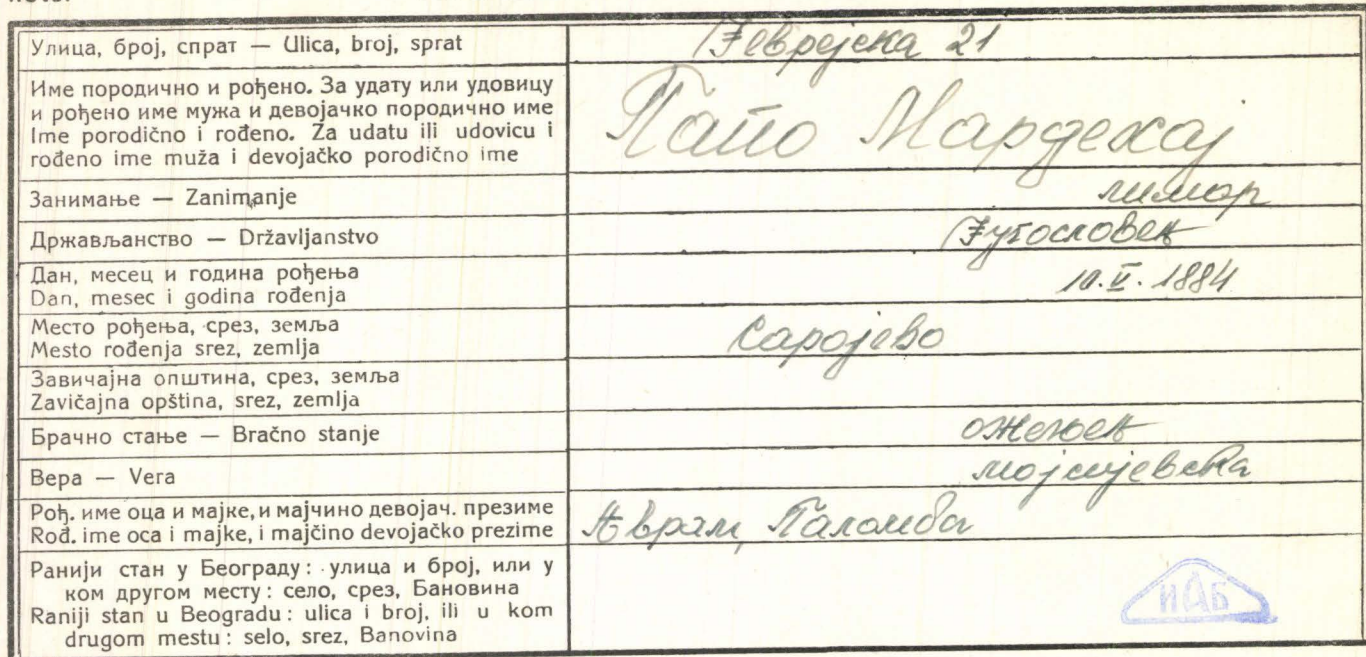 Улица, број, спрат — Ulica, broj, sprat
Јеврејска 21
Име породично и рођено. За удату или удовицу
и рођено име мужа и девојачко породично име
Ime porodično i rođeno. Za udatu ili udovicu i
rođeno ime muža i devojačko porodično ime
Папо Мардехај
Занимање — Zanimanje
лимар
Држављанство — Državljanstvo
Југословен
Дан, месец и година рођења
Dan, mesec i godina rođenja
10.V.1884
Место рођења, срез, земља
Mesto rođenja srez, zemlja
Сарајево
Завичајна општина, срез, земља
Zavičajna opština, srez, zemlja
Брачно стање — Bračno stanje
ожењен
Вера — Vera
мојсијевска
Рођ. име оца и мајке, и мајчино девојач. презиме
Rođ. ime oca i majke, i majčino devojačko prezime
Аврам, Паломба
Ранији стан у Београду: улица и број, или у
ком другом месту: село, срез, Бановина
Raniji stan u Beogradu: ulica i broj, ili u kom
drugom mestu: selo, srez, Banovina
ИАБ